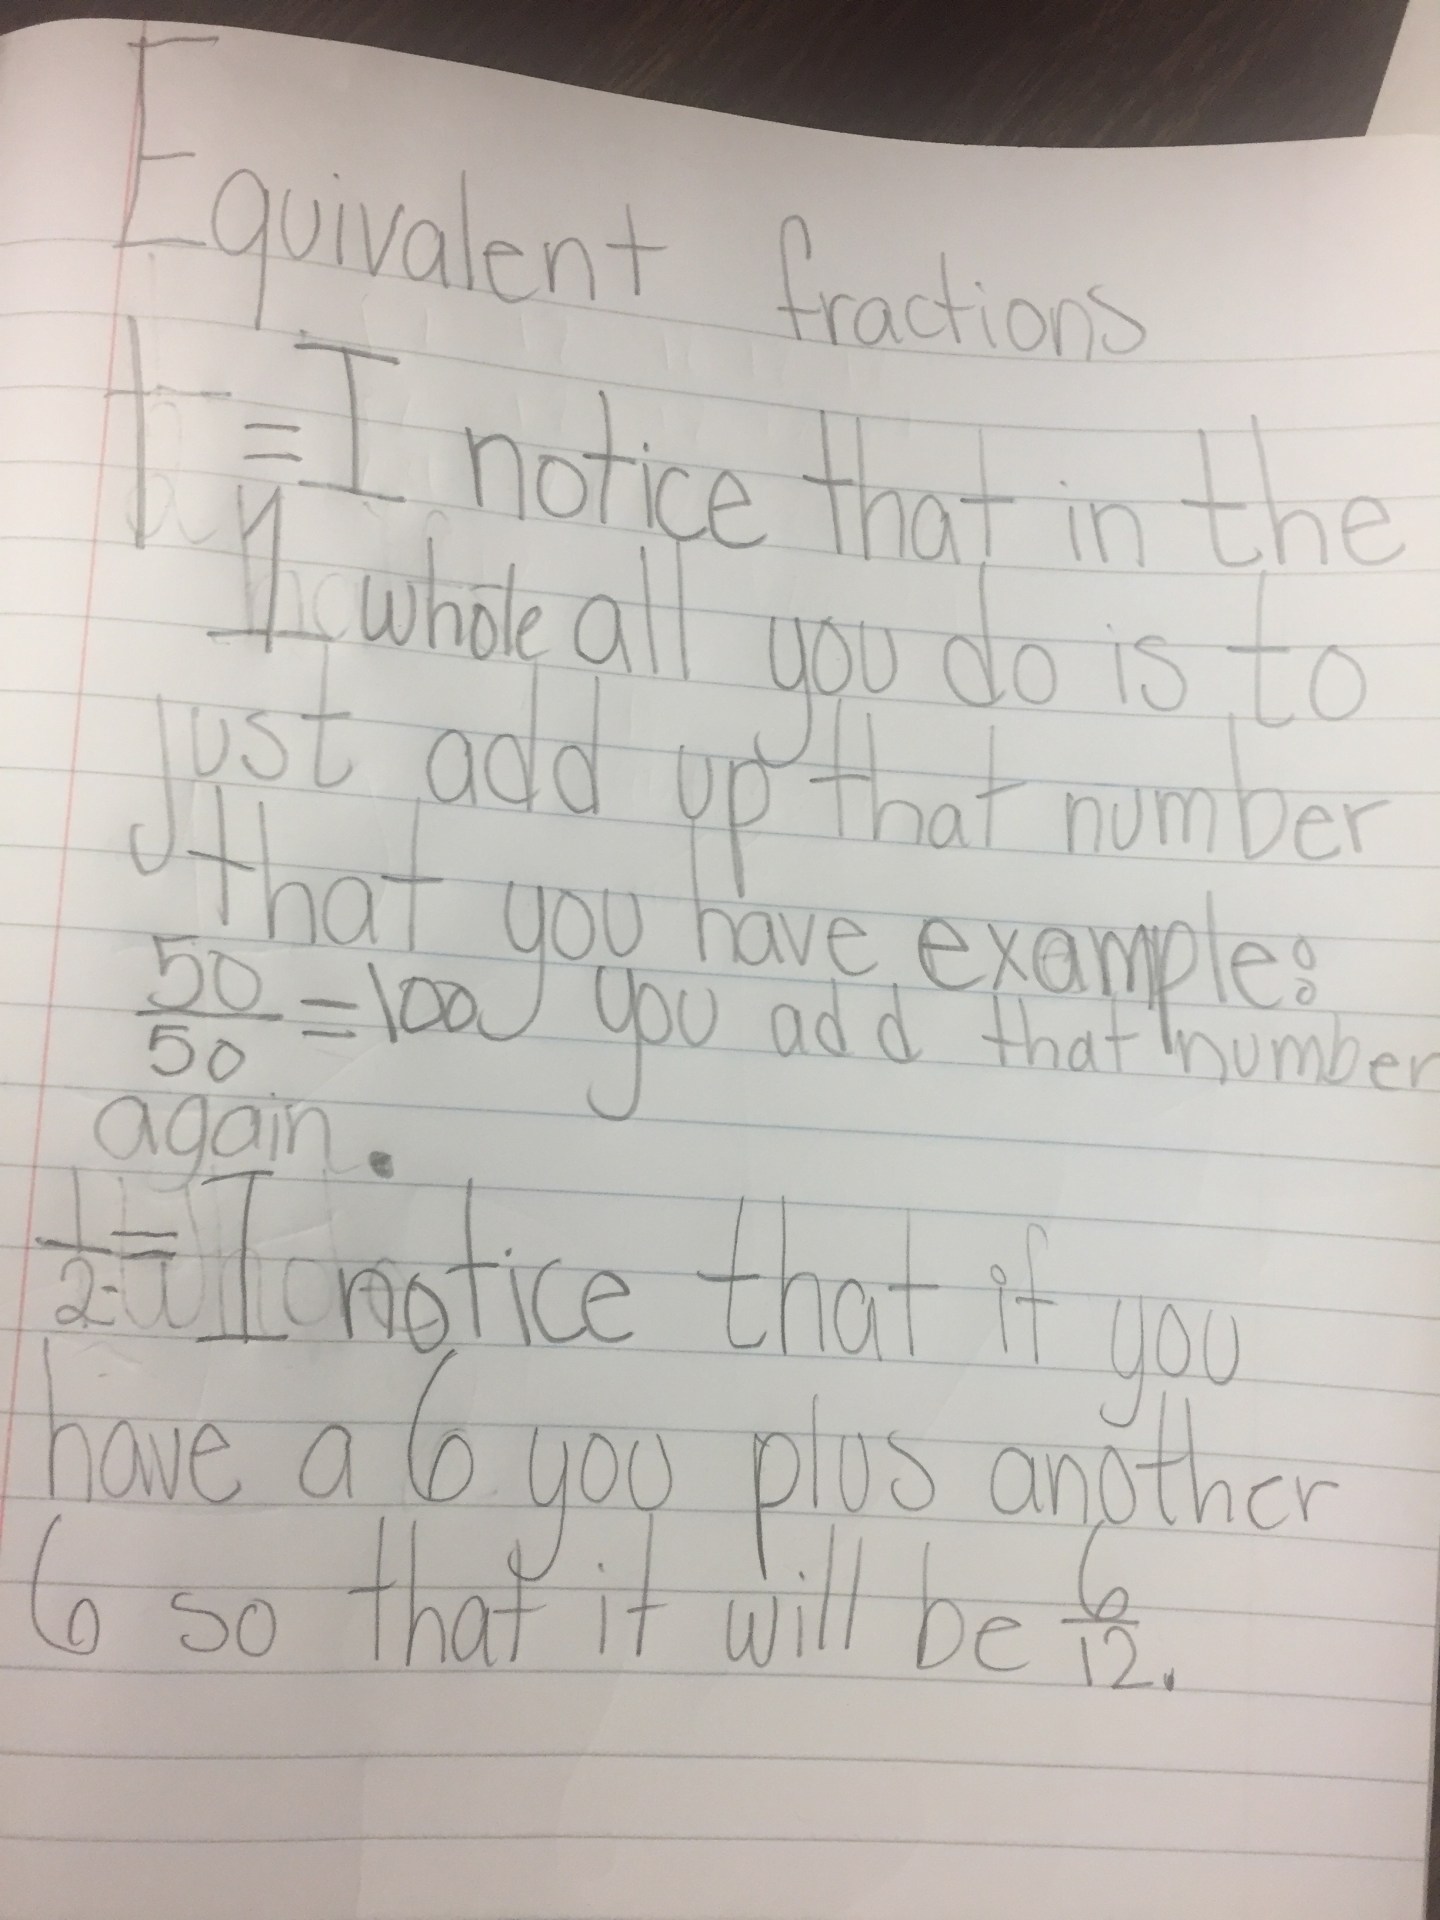 Equivalent fractions
1/1 = I notice that in the
1 whole all you do is to
just add up that number
that you have example:
50/50 = 100 you add that number
again.
1/2 = I notice that if you
have a 6 you plus another
6 so that it will be 6/12.